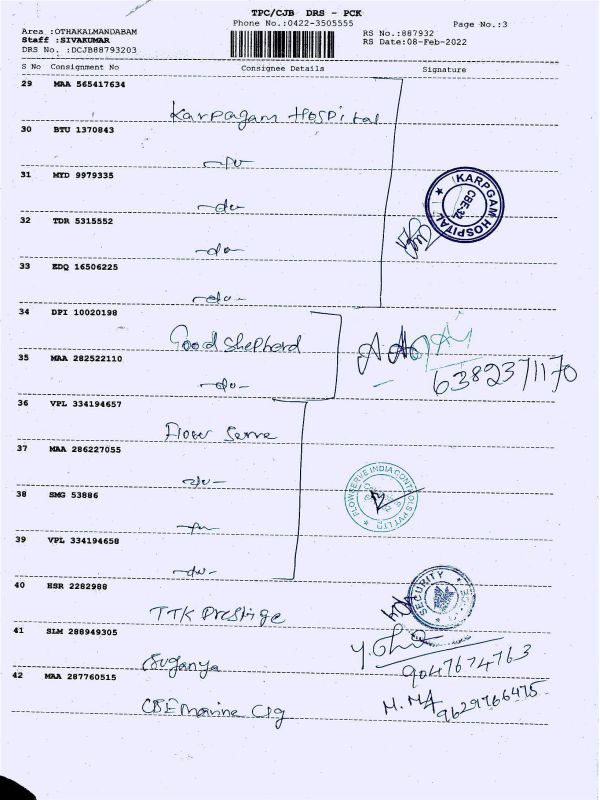 TPC/CJB DRS - PCK
Phone No.:0422-3505555
Page No.:3
Area :OTHAKALMANDABAM
Staff :SIVAKUMAR
DRS No. :DCJB88793203
RS No.:887932
RS Date:08-Feb-2022
S No Consignment No Consignee Details Signature
29 MAA 565417634
Karpagam Hospital
30 BTU 1370843
-do-
31 MYD 9979335
-do-
32 TDR 5315552
-do-
33 EDQ 16506225
-do-
KARPGAM HOSPITAL
CBE-32
34 DPI 10020198
Good Shepherd
35 MAA 282522110
-do-
6382371170
36 VPL 334194657
Flow Serve
37 MAA 286227055
-do-
38 SMG 53886
-do-
39 VPL 334194658
-do-
FLOWSERVE INDIA CONTROLS PVT LTD
40 HSR 2282988
TTK Prestige
SECURITY
41 SLM 288949305
Suganya
9047674763
42 MAA 287760515
CBE Marine Crg
M.MA
9629766475